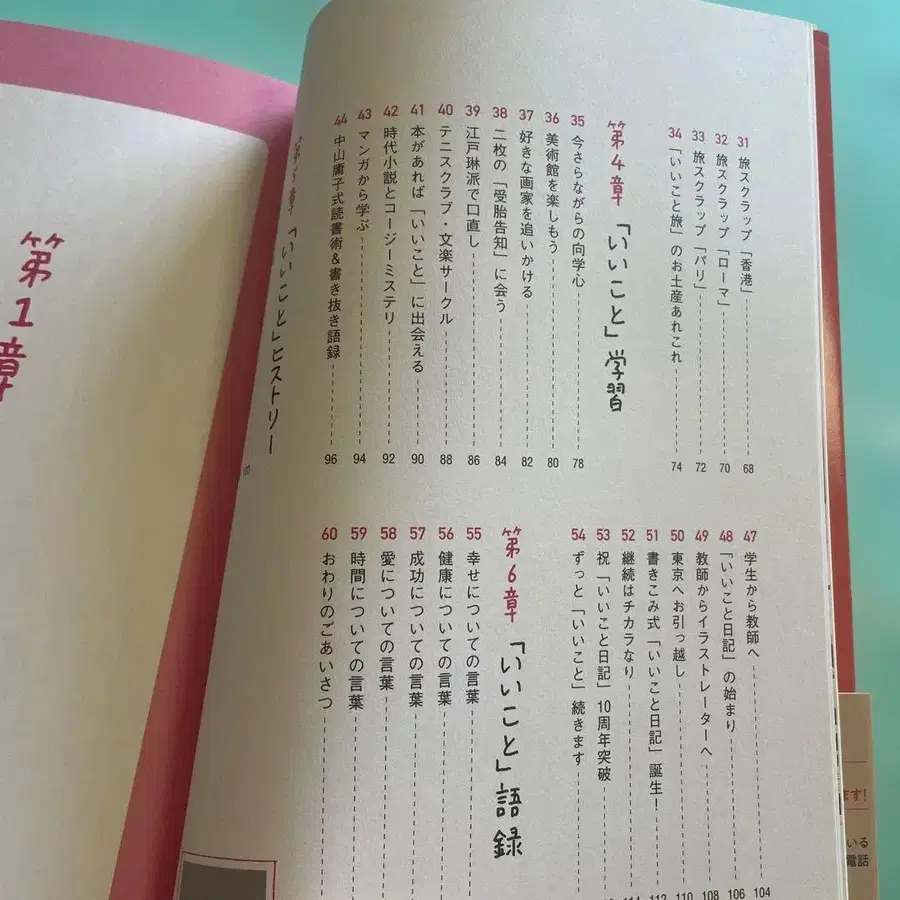 31 旅スクラップ「香港」 68
32 旅スクラップ「ローマ」 70
33 旅スクラップ「パリ」 72
34 「いいこと旅」のお土産あれこれ 74
第4章 「いいこと」学習
35 今さらながらの向学心 78
36 美術館を楽しもう 80
37 好きな画家を追いかける 82
38 二枚の「受胎告知」に会う 84
39 江戸琳派で口直し 86
40 テニスクラブ・文楽サークル 88
41 本があれば「いいこと」に出会える 90
42 時代小説とコージーミステリ 92
43 マンガから学ぶ 94
44 中山庸子式読書術&書き抜き語録 96
章 「いいこと」ヒストリー
47 学生から教師へ 104
48 「いいこと日記」の始まり 106
49 教師からイラストレーターへ 108
50 東京へお引っ越し 110
51 書きこみ式「いいこと日記」誕生! 112
52 継続はチカラなり
53 祝「いいこと日記」10周年突破
54 ずっと「いいこと」続きます
第6章 「いいこと」語録
55 幸せについての言葉
56 健康についての言葉
57 成功についての言葉
58 愛についての言葉
59 時間についての言葉
60 おわりのごあいさつ
第1章
ます!
いる
電話